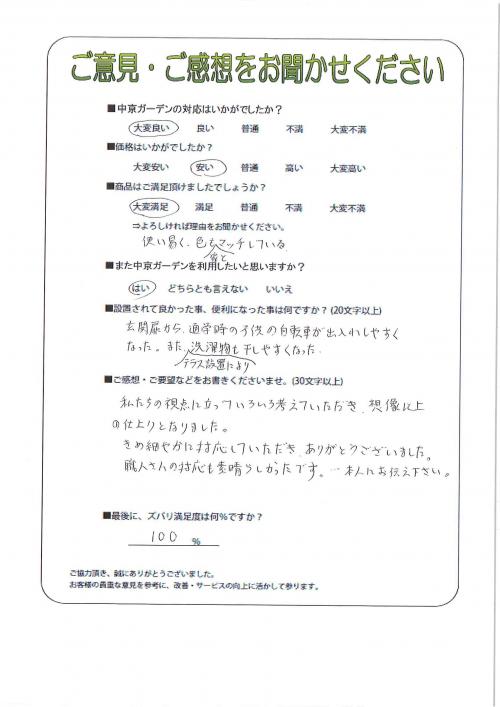 ご意見・ご感想をお聞かせください
■中京ガーデンの対応はいかがでしたか？
大変良い 良い 普通 不満 大変不満
■価格はいかがでしたか？
大変安い 安い 普通 高い 大変高い
■商品はご満足頂けましたでしょうか？
大変満足 満足 普通 不満 大変不満
⇒よろしければ理由をお聞かせください。
使い易く、色もマッチしている
家と
■また中京ガーデンを利用したいと思いますか？
はい どちらとも言えない いいえ
■設置されて良かった事、便利になった事は何ですか？(20文字以上)
玄関扉から、通学時の子供の自転車が出入れしやすく
なった。また、洗濯物も干しやすくなった。
テラス設置により
■ご感想・ご要望などをお書きくださいませ。(30文字以上)
私たちの視点に立っていろいろ考えていただき、想像以上
の仕上りとなりました。
きめ細やかに対応していただき、ありがとうございました。
職人さんの対応も素晴らしかったです。…本人にお伝え下さい。
■最後に、ズバリ満足度は何%ですか？
100 %
ご協力頂き、誠にありがとうございました。
お客様の貴重な意見を参考に、改善・サービスの向上に活かして参ります。